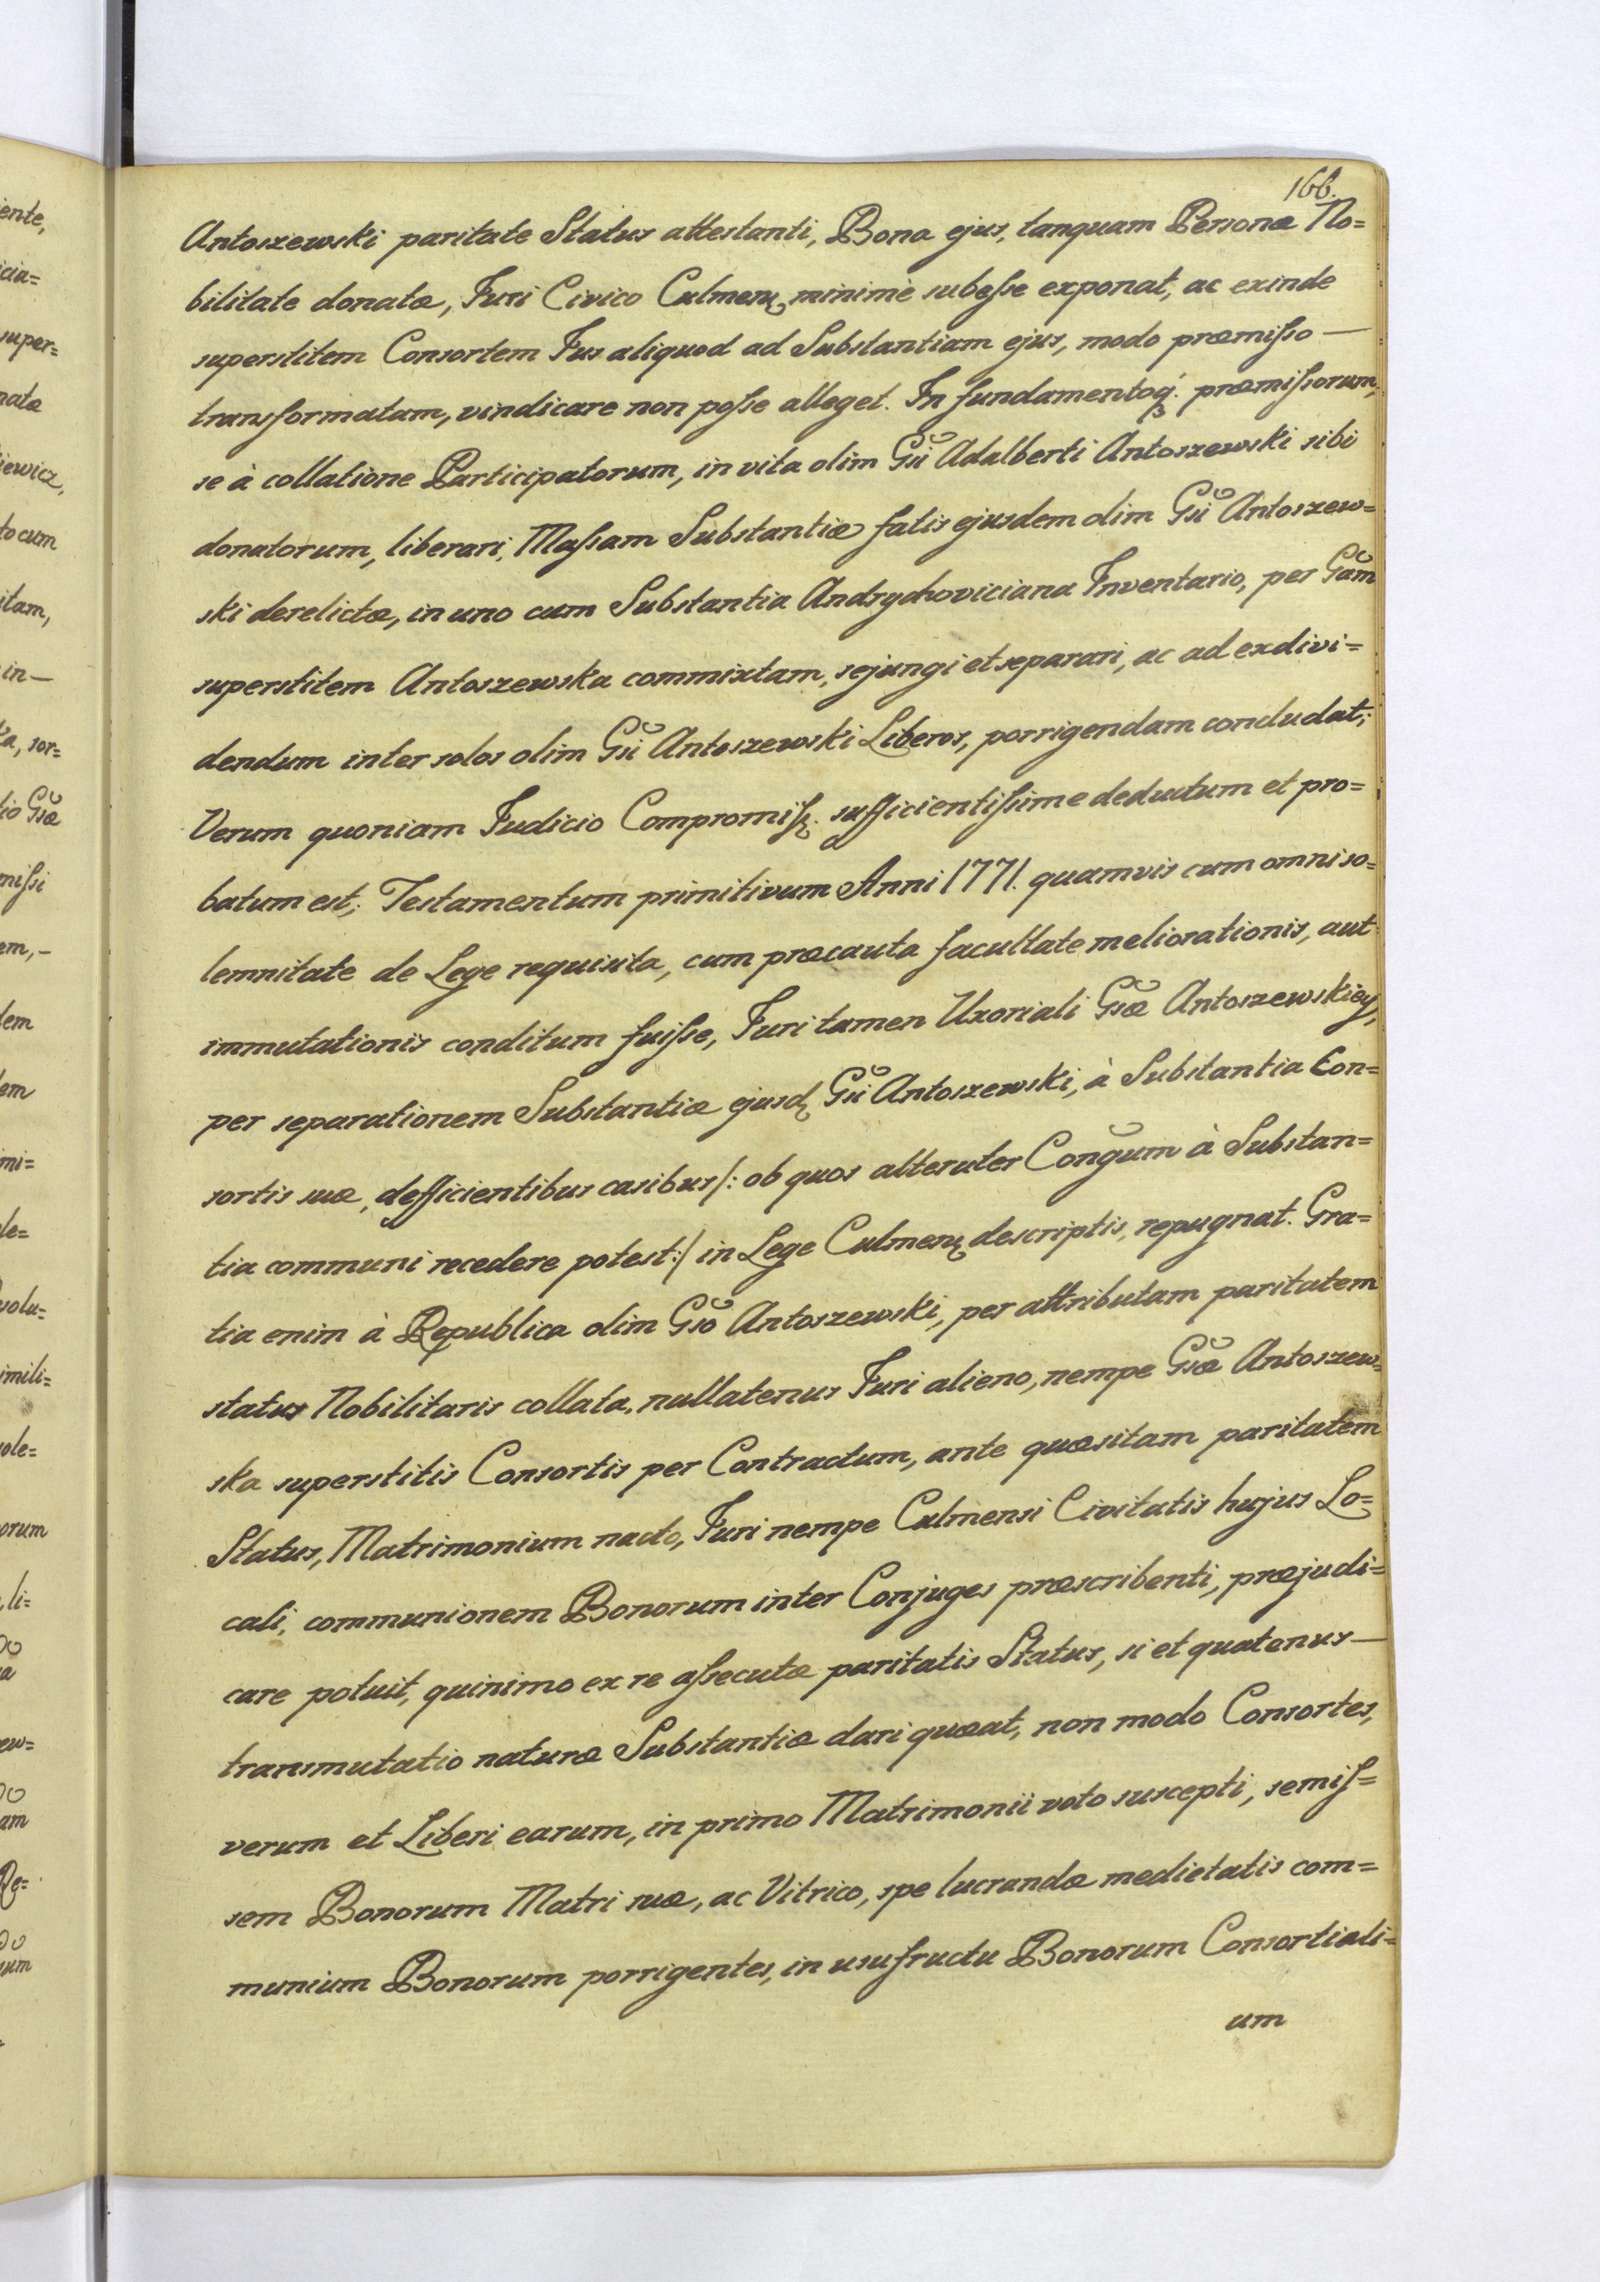 166.
Antoszewski paritate Status attestanti, Bona ejus, tanquam Personæ No=
bilitate donatæ, Juri Civico Culmenſ minimè subeſse exponat, ac exinde
superstitem Consortem Jus aliquod ad Substantiam ejus, modo præmiſso —
transformatam, vindicare non poſse alleget. In fundamentoq́ præmiſsorum,
se à collatione Participatorum, in vita olim Gsi Adalberti Antoszewski sibi
donatorum, liberari, Maſsam Substantiæ fatis ejusdem olim Gsi Antoszew=
ski derelictæ, in uno cum Substantia Andrychoviciana Inventario, per Gam
superstitem Antoszewska commixtam, sejungi et separari, ac ad exdivi=
dendum inter solos olim Gsi Antoszewski Liberos, porrigendam concludat;
Verum quoniam Judicio Compromiſs. sufficientiſsime deductum et pro=
batum est; Testamentum primitivum Anni 1771. quamvis cum omni so=
lemnitate de Lege requisita, cum præcauta facultate meliorationis, aut
immutationis conditum fuiſse, Juri tamen Uxoriali Gsæ Antoszewskiey,
per separationem Substantiæ ejusd Gsi Antoszewski, à Substantia Con=
sortis suæ, defficientibus casibus /: ob quos alteruter Congum à Substan=
tia communi recedere potest :/ in Lege Culmenſ descriptis, repugnat. Gra=
tia enim à Republica olim Gso Antoszewski, per attributam paritatem
status Nobilitaris collata, nullatenus Juri alieno, nempe Gsæ Antoszew=
ska superstitis Consortis per Contractum, ante quæsitam paritatem
Status, Matrimonium nacto, Juri nempe Culmensi Civitatis hujus Lo=
cali, communionem Bonorum inter Conjuges præscribenti, præjudi=
care potuit, quinimo ex re aſsecutæ paritatis Status, si et quatenus —
transmutatio naturæ Substantiæ dari quæat, non modo Consortes,
verum et Liberi earum, in primo Matrimonii voto suscepti, semiſ=
sem Bonorum Matri suæ, ac Vitrico, spe lucrandæ medietatis com=
munium Bonorum porrigentes, in usufructu Bonorum Consortiali=
um